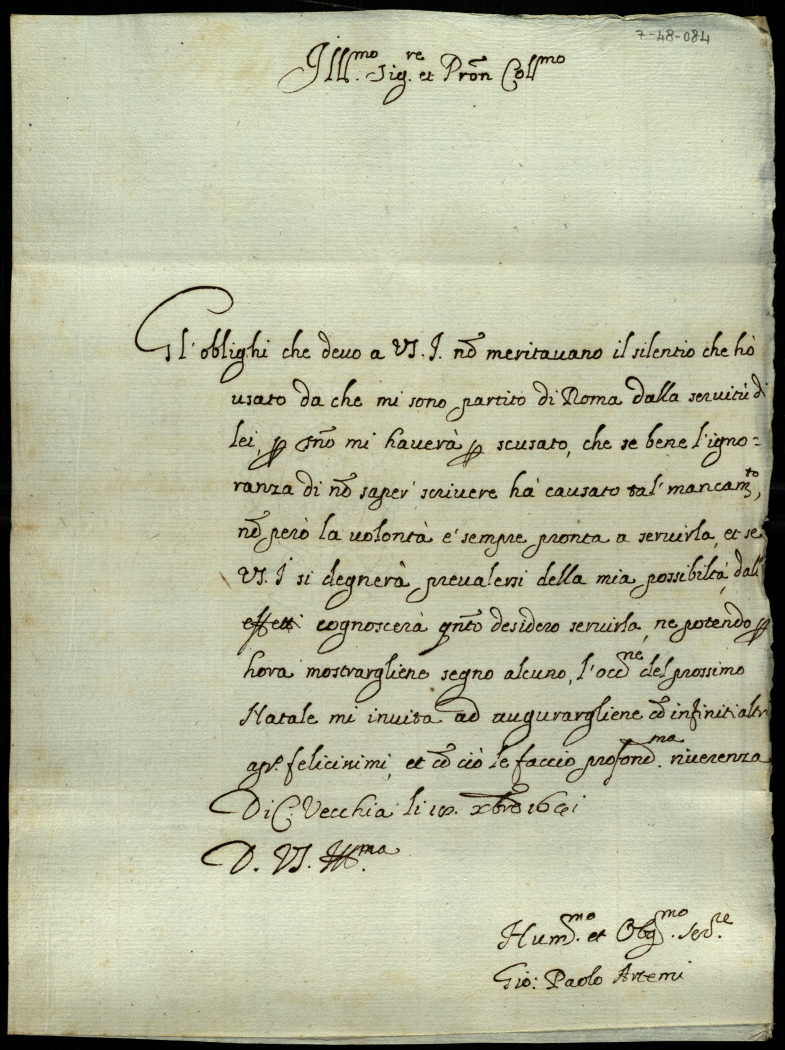 7-48-084
Ill.mo Sig.re et Pron Coll.mo
Gl'oblighi che devo a VS. I. nō meritavano il silentio che hò
usato da che mi sono partito di Roma dalla servitù di
lei, ꝑ mi haverà ꝑ scusato, che se bene l'igno=
ranza di nō saper' scrivere ha' causato tal' mancam.to,
nō però la volontà e' sempre pronta a servirla, et se
VS. I si degnerà prevalersi della mia possibiltà, dall'
effetti cognoscerà qnto desidero servirla, ne potendo ꝑ
hora mostrargliene segno alcuno, l'occ.ne del prossimo
Natale mi invita ad augurargliene cō infiniti altri
app.o felicissimi, et cō ciò le faccio profond.ma riverenza
Di C. Vecchia li Xbre
D. VS. Ill.ma
Hum.mo et Obg.mo Ser.re
Gio: Paolo Artemi